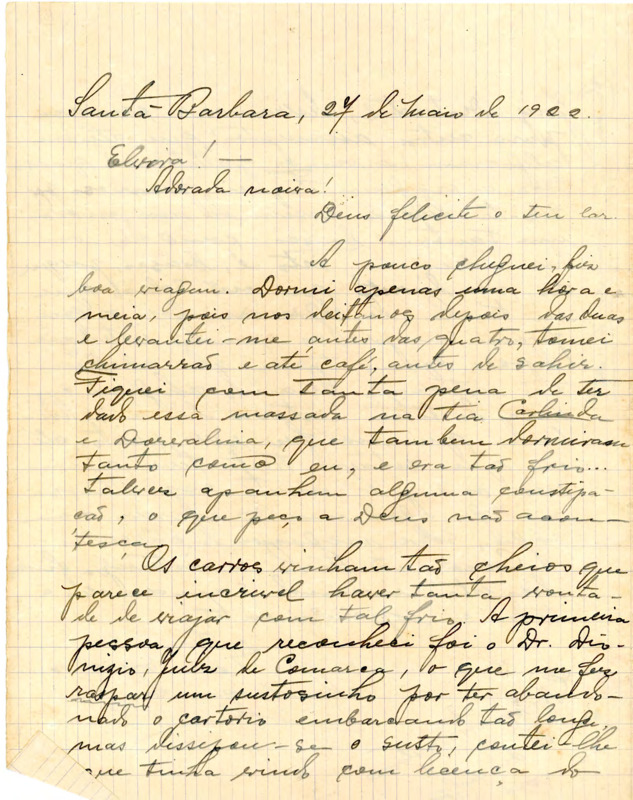 Santa Barbara, 27 de Maio de 1922.
Elvira! —
Adorada noiva!
Deus felicite o teu lar.
A pouco cheguei, fiz
boa viagem. Dormi apenas uma hora e
meia, pois nos deitamos depois das duas
e levantei-me antes das quatro, tomei
chimarrão e até café, antes de sahir.
Fiquei com tanta pena de ter
dado essa massada na tia Carlinda
e Dorvalina, que tambem dormiram
tanto como eu, e era tão frio...
talvez apanhem alguma constipa-
cão, o que peço a Deus não acon-
tesça.
Os carros vinham tão cheios que
parece incrivel haver tanta vonta-
de de viajar com tal frio. A primeira
pessoa que reconheci foi o Dr. Dio-
nizio, Juiz de Comarca, o que me fez
raspar um sustosinho por ter abando-
nado o cartorio embarcando tão longe,
mas dissipou-se o susto, contei-lhe
que tinha vindo com licença do